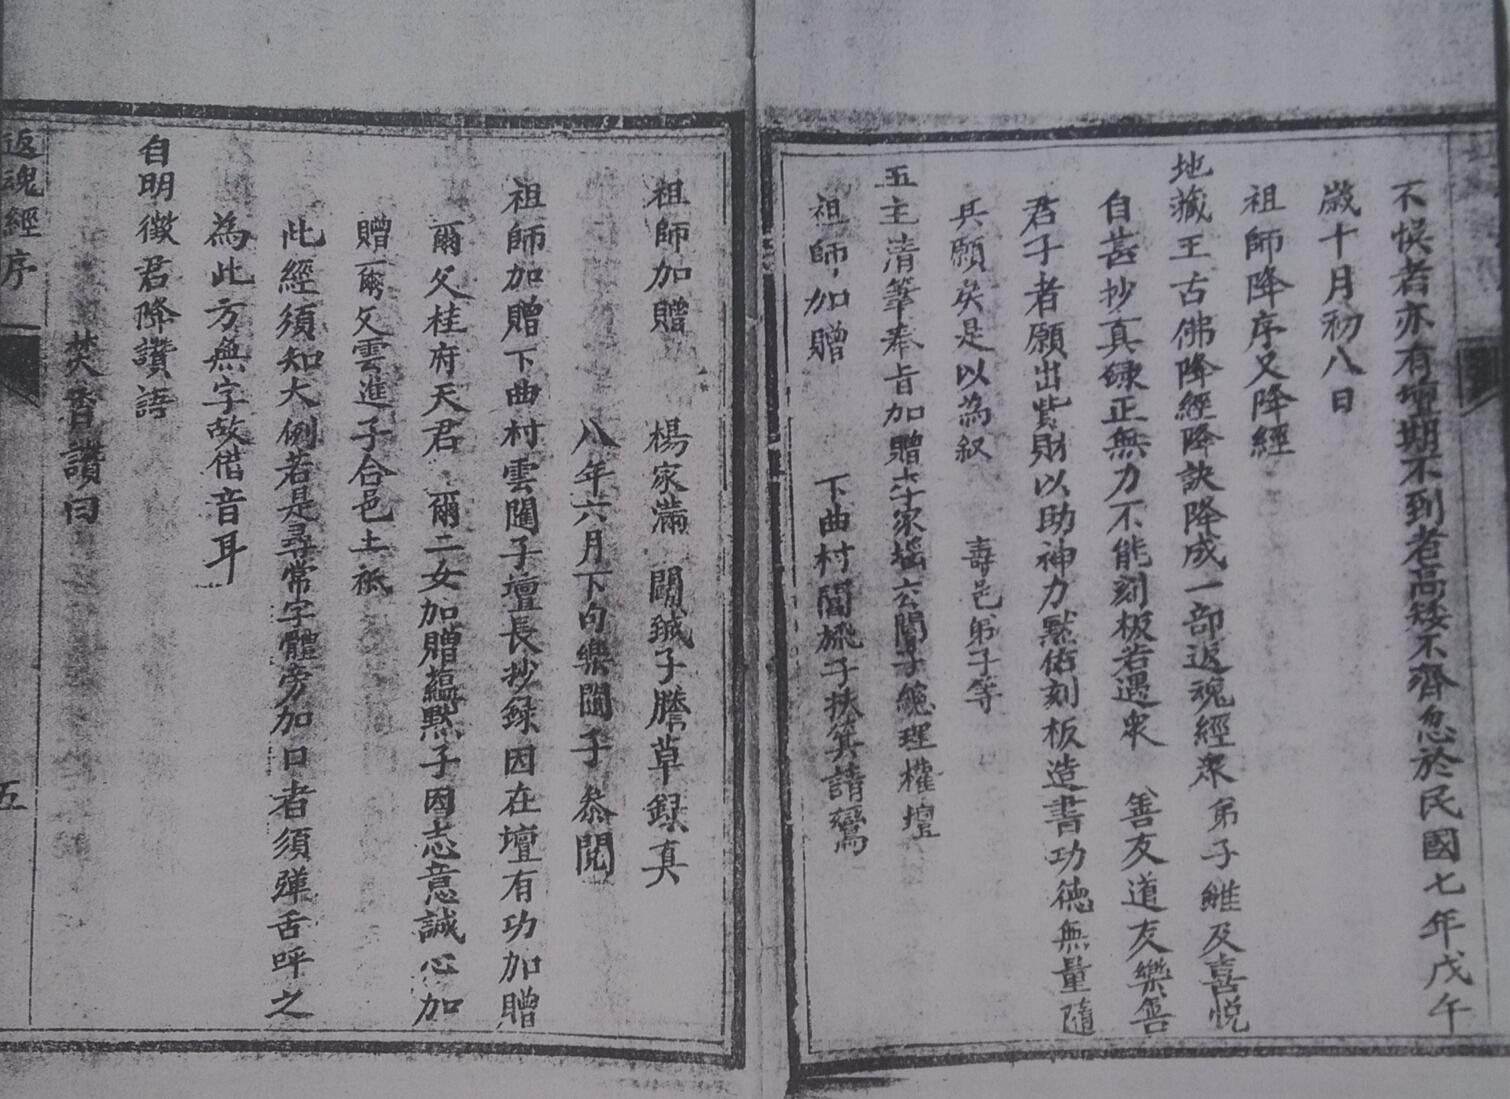 不悞者亦有壇期不到者高矮不齊忽於民國七年戊午
歲十月初八日
祖師降序又降經
地藏王古佛降經降訣降成一部返魂經眾弟子雖及喜悅
自甚抄真碌正無力不能刻板若遇眾 善友道友樂善
君子者願出貲財以助神力默佑刻板造書功德無量隨
共願矣是以為叙 壽邑弟子等
五主清筆奉旨加贈 家 公閣子總理權壇
祖師加贈 下曲村閻 子扶箕請鸞
祖師加贈 楊家滿 子謄草録真
八年六月下旬樂闡子恭閱
祖師加贈下曲村雲闡子壇長抄録因在壇有功加贈
爾父桂府天君 爾二女加贈蘊默子因志意誠心加
贈爾父雲進子合邑土祇
此經須知大例若是尋常字體旁加口者須彈舌呼之
為此方無字故借音耳
自明徵君降讚語
焚香讚曰
返魂經序
五